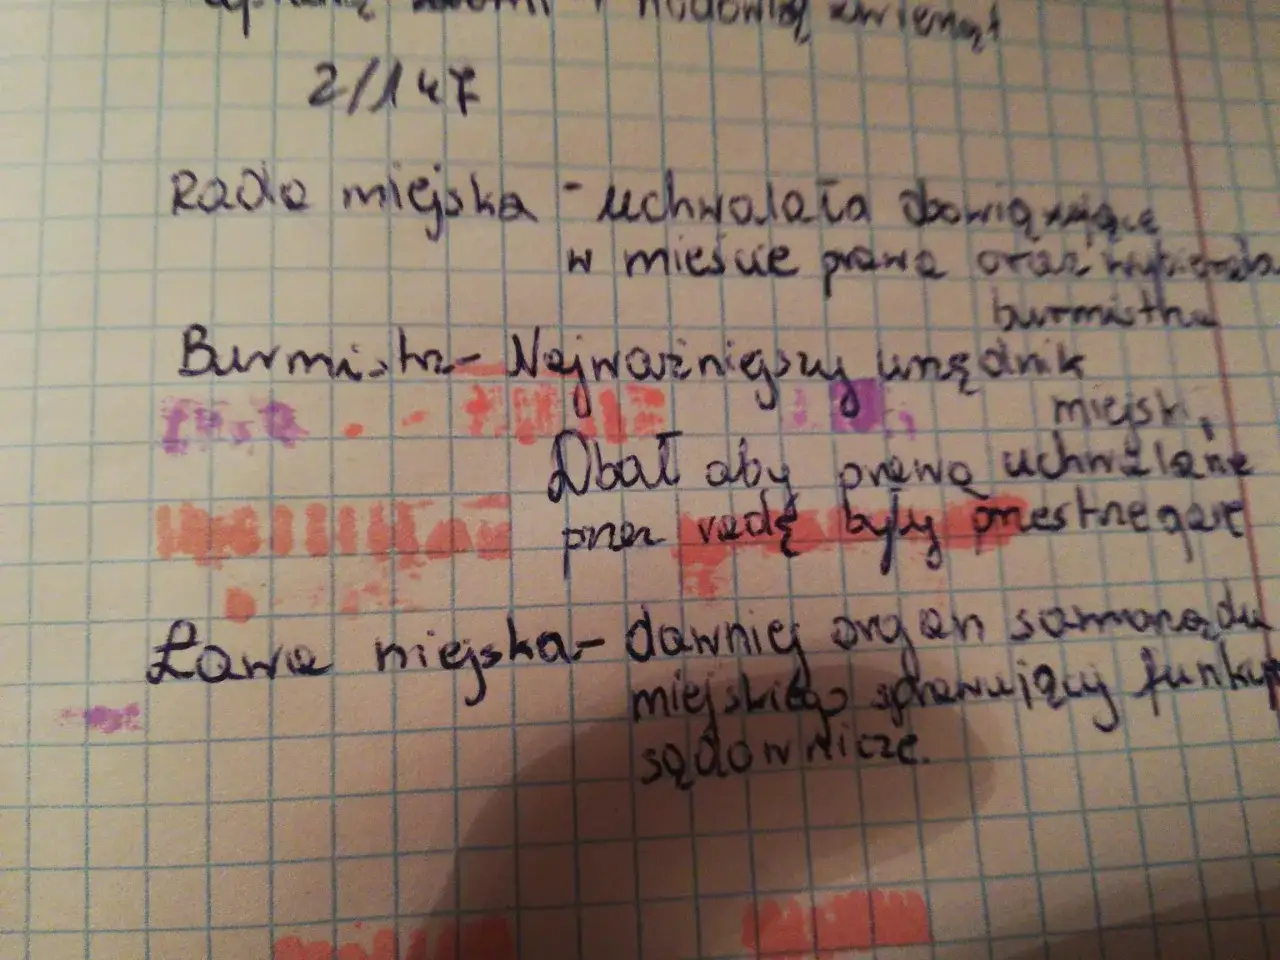 i hodowlą zwierząt
2/147
Rada miejska - uchwalała obowiązujące
w mieście prawa oraz wybierała
burmistrza
Burmistrz - Najważniejszy urzędnik
miejsk.
Dbał aby prawa uchwalane
przez radę były przestrzegane
Ława miejska - dawniej organ samorządu
miejskiego sprawujący funkcje
sądownicze.